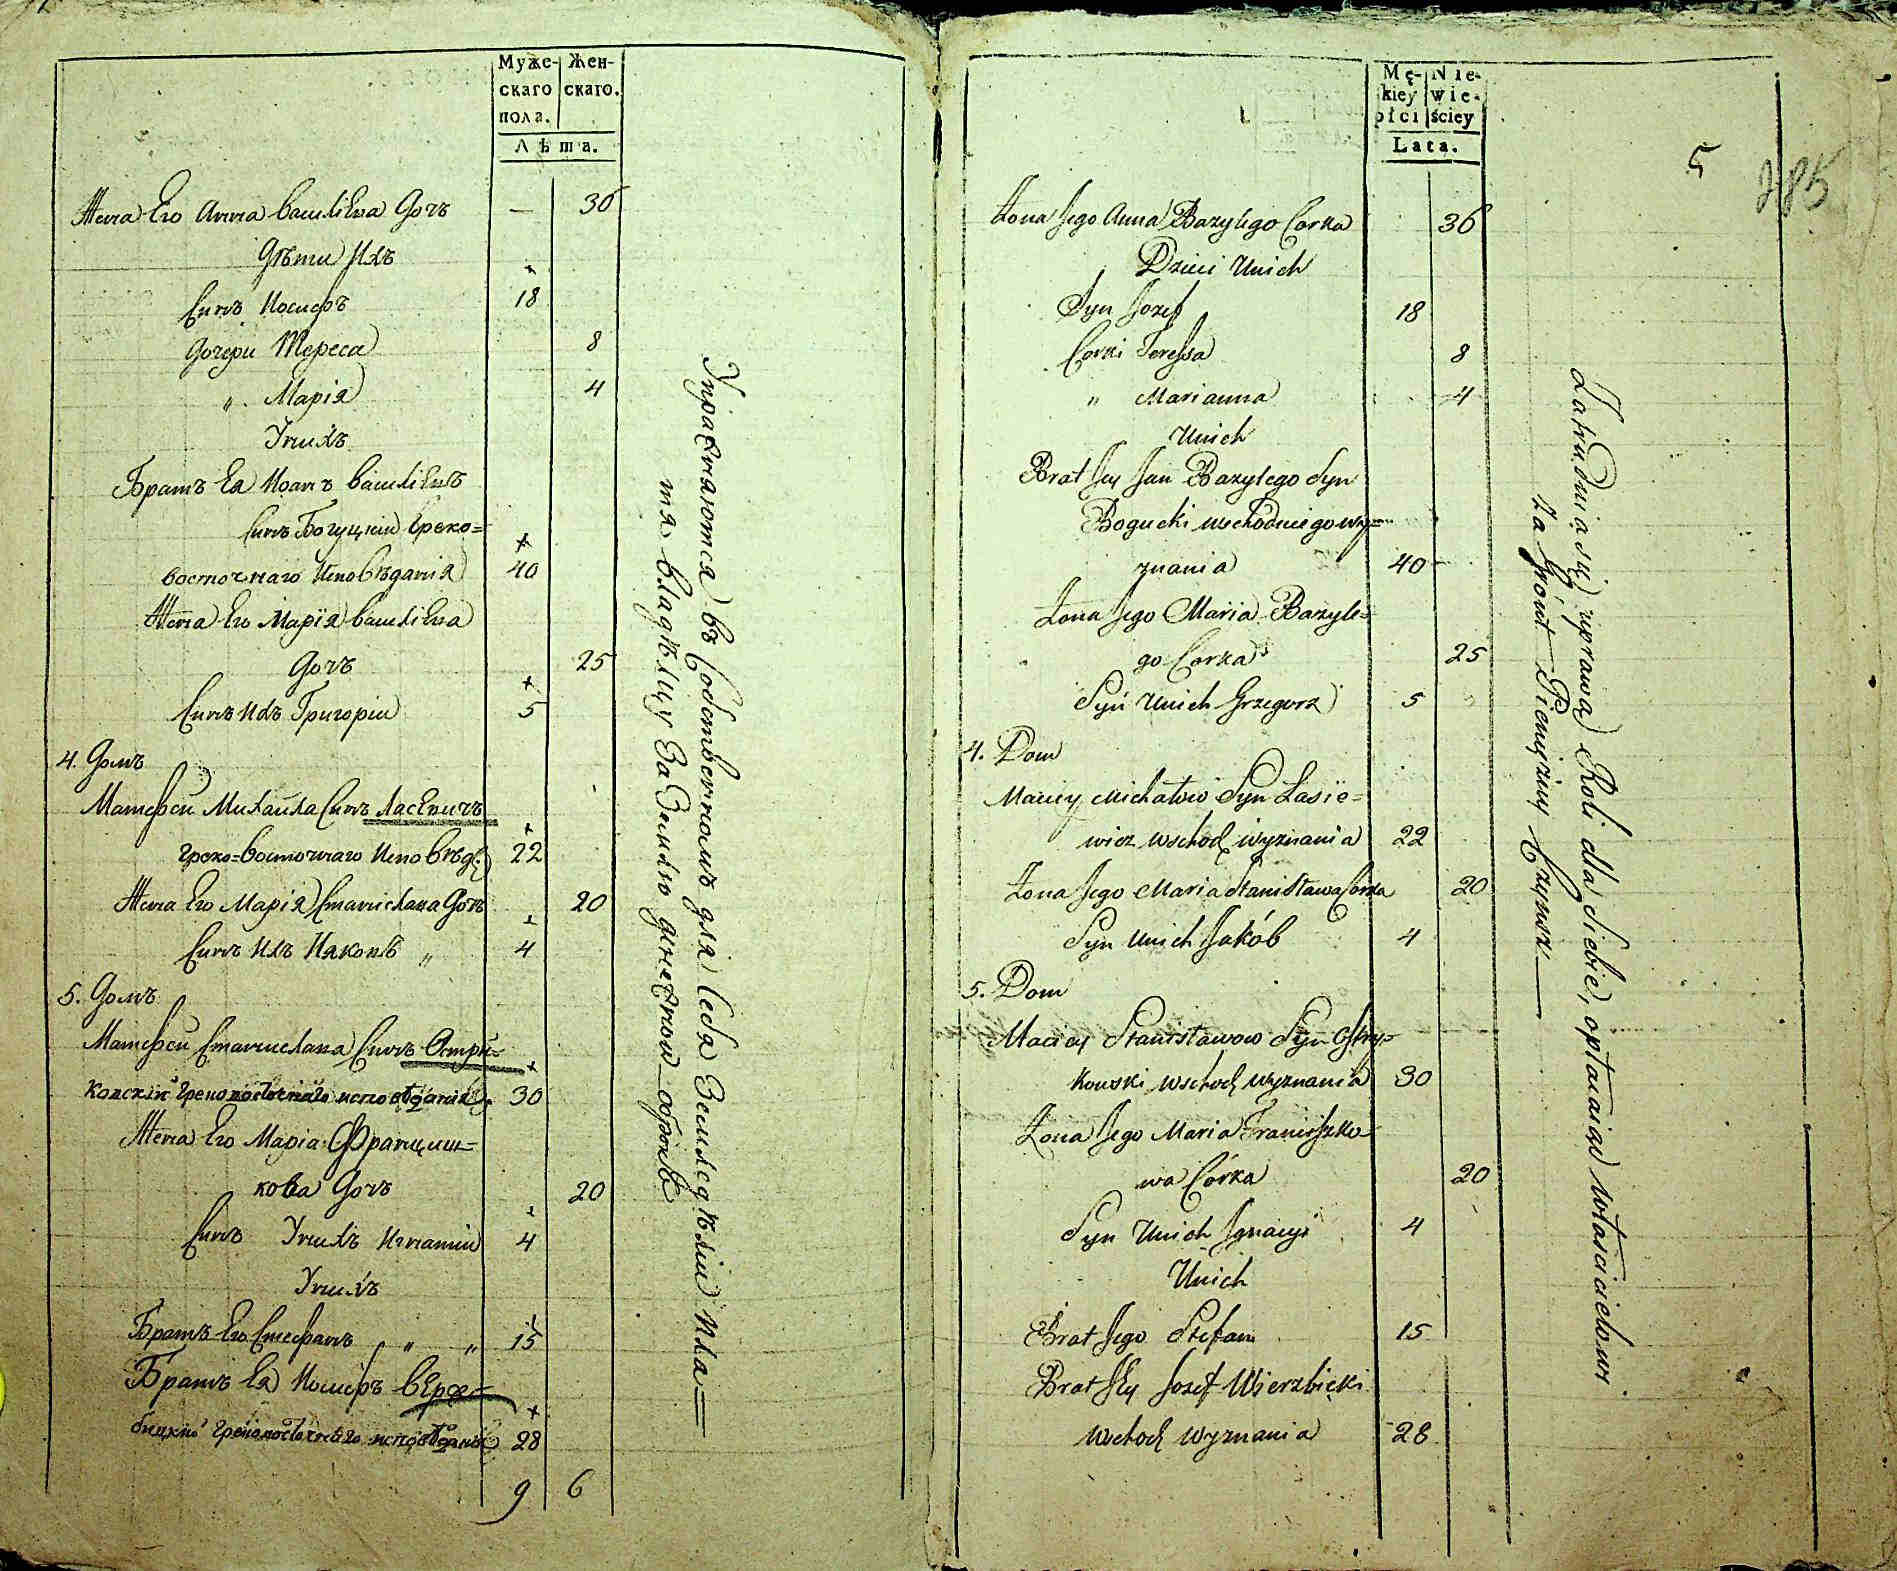 Муже- Жен-
скаго скаго.
пола.
Лѣта.
Жена Его Анна Василіева Дочь — 36
Дѣти Ихъ
Сынъ Иосифъ 18
Дочери Тереса 8
„ Марія 4
Унихъ
Братъ Ея Иоанъ Василіевъ
Сынъ Богуцкіи Греко=
восточнаго Исповѣданія 40
Жена Его Марія Василіева
Дочь 25
Сынъ Ихъ Григоріи 5
4. Домъ
Матфеи Михайла Сынъ Ласевичъ
Греко=восточнаго Исповѣд: 22
Жена Его Марія Станислава Дочь 20
Сынъ Ихъ Иаковъ „ 4
5. Домъ
Матфеи Станислава Сынъ Остри=
ковскій Грековосточнаго исповѣданія. 30
Жена Его Марія Франциш=
кова Дочь 20
Сынъ Унихъ Игнатіи 4
Унихъ
Братъ Его Стефанъ „ „ „ 15
Братъ Ея Иосифъ Верж=
бицкій Грековосточнаго исповѣданія 28
9 6
Упражняются въ Собственномъ для Себя Земледѣліи Пла=
тя владѣльцу За Землю денежной оброкъ
Mę- Nie-
kiey wie-
płci ściey
Lata.
5
485
Żona Jego Anna Bazylego Corka 36
Dzieci Unich
Syn Jozef 18
Corki Teressa 8
„ Marianna 4
Unich
Brat Jey Jan Bazylego Syn
Bogucki wschodniego wy=
znania 40
Żona Jego Maria Bazyle=
go Corka 25
Syn Unich Grzegorz 5
4. Dom
Maciey Michałow Syn Lasie=
wicz wschod wyznania 22
Żona Jego Maria Stanisława Corka 20
Syn Unich Jakób 4
5. Dom
Maciey Stanisławow Syn Ostry=
kowski wschod wyznania 30
Żona Jego Maria Franciszko=
wa Córka 20
Syn Unich Ignacy 4
Unich
Brat Jego Stefan 15
Brat Jey Jozef Wierzbicki
wschod wyznania 28
Zatrudnia się uprawą Roli dla Siebie, opłacaiąc właścicielowi
za Grónt Pieniężny Czynsz —